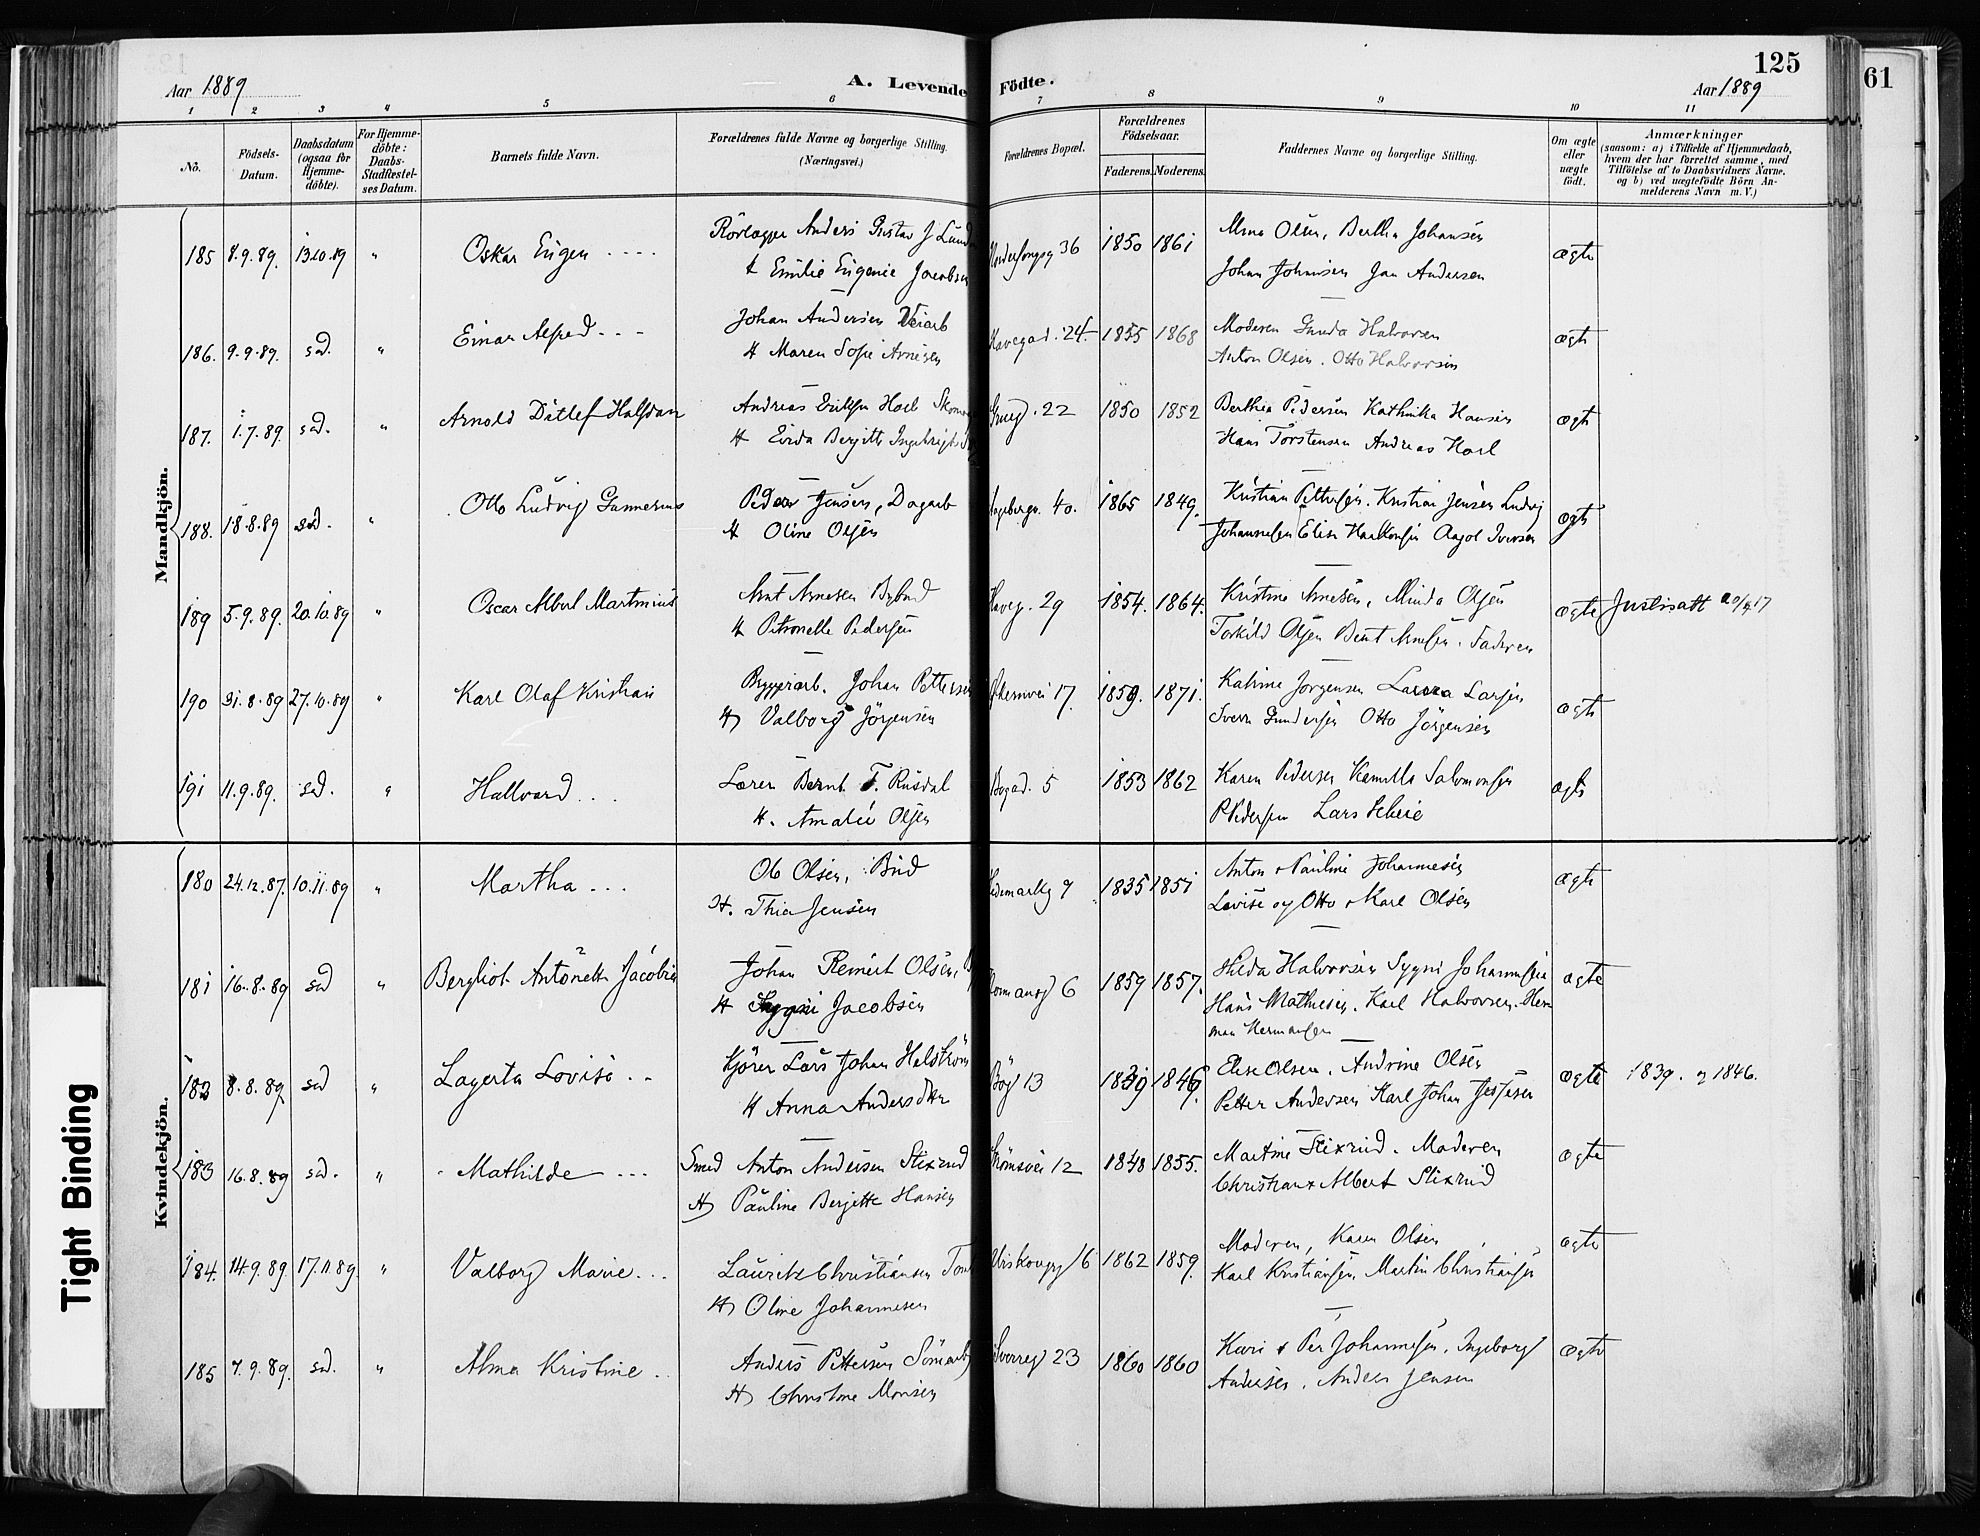 125
61
Aar 1889
A. Levende Födte.
Aar 1889
1 2 3 " 5 6 7 8 9 10 11
No.
Födsels-Datum.
Daabsdatum (ogsaa for Hjemme-döbte).
For Hjemme-döbte: Daabs-Stadfæstel-ses Datum.
Barnets fulde Navn.
Forældrenes fulde Navne og borgerlige Stilling. (Næringsvei.)
Forældrenes Bopæl.
Forældrenes Födselsaar.
Faderens. Moderens.
Faddernes Navne og borgerlige Stilling.
Om ægte eller uægte födt.
Anmærkninger
(saasom: a) i Tilfælde af Hjemmedaab,
hvem der har forrettet samme, med
Tilföielse af to Daabsvidners Navne.
og b) ved uægtefödte Börn An-
melderens Navn m. V.)
Mandkjön.
185 8.9.89. 13.10.89 " Oskar Eugen Anders Gustav J 36 1850 1861 Olsen, Bertha Johansen ægte
& Emilie Eugenie Jacobsen Johan Johansen Jan Andersen
186. 9.9.89. sd. " Einar Alfred Johan Andersen Veiarb Havegad. 24 1855 1868 Moderen Gunda Halvorsen ægte
H Maren Sofie Arnesen Anton Olsen. Otto Halvorsen
187. 1.7.89. sd. " Arnold Ditlef Halfdan Andreas 22 1850 1852 Berthea Pedersen Kathinka Hansen ægte
H Berjitte Hans Torstensen Andreas
188. 18.8.89 sd. " Otto Ludvig Gunnerius Peder Jensen, Dagarb 40. 1865 1849. Kristian Pettersen. Kristian Jensen Ludvig ægte
H Oline Olsen Johannesen Elise Haakonsen Iversen
189 5.9.89. 20.10.89 " Oscar Albert Martinius Arnt Arnesen Bybud Haveg. 29 1854. 1864. Kristine Arnesen, Minda Olsen ægte 20/4 17
H Petronelle Pedersen Torkild Olsen Bent Arnesen. Faderen
190 31.8.89 27.10.89 " Karl Olaf Kristian Bryggearb. Johan Pettersen 17. 1859. 1871. Katrine Jörgensen Larsen ægte
H Valborg Jörgensen Sven Gundersen Otto Jörgensen
191 11.9.89. sd. " Hallvard Lærer Bernt T. Rusdal Bogad. 5 1853 1862 Karen Pedersen Kamilla Salomonsen ægte
H. Amalie Olsen P Pedersen Lars Scheie
Kvindekjön.
180 24.12.87. 10.11.89 " Martha Ole Olsen, Bud Hedemarkg 9 1835 1851 Anton & Pauline Johannesen ægte
H. Thia Jensen Lovise og Otto & Karl Olsen
181 16.8.89 sd " Bergliot Antonette Jacobine Johan Reinert Olsen, 6 1859 1857. Hilda Halvorsen Johannesen ægte
H Jacobsen Hans Mathiesen. Karl Halvorsen. Her
man Hermansen
182 8.8.89 sd " Lagerta Lovise Kjörer Lars Johan Bög 13 1839 1846. Elise Olsen. Andrine Olsen ægte 1839. og 1846.
H Anna Andersdtr Petter Andersen Karl Johan Jespesen
183 16.8.89 sd. " Mathilde Smed Anton Andersen Stixrud Strömsvei 12 1848 1855. Martine Stixrud. Moderen ægte
H Pauline Berjette Hansen Christian & Albert Stixrud
184. 14.9.89. 17.11.89. " Valborg Marie Lauritz Christiansen 16 1862 1859. Moderen, Karen Olsen ægte
H Oline Johannesen Karl Kristiansen, Martin Christiansen
185 7.9.89. sd. " Alma Kristine Anders Pettersen Sömarb Sverreg 23 1860 1860 Kari & Per Johannesen, Ingeborg ægte
H Christine Monsen Andersen. Anders Jensen
Tight Binding